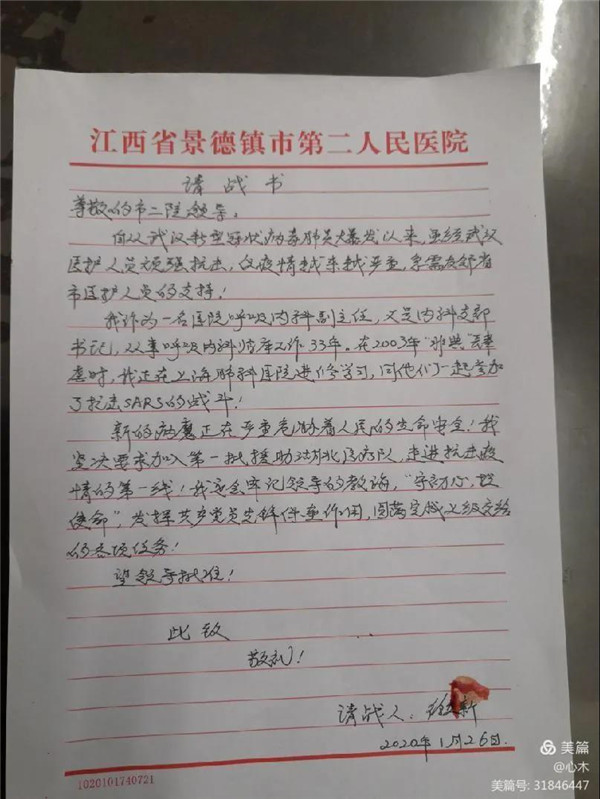 江西省景德镇市第二人民医院
请战书
尊敬的市二院领导:
自从武汉新型冠状病毒肺炎爆发以来,虽经武汉
医护人员顽强抗击,但疫情越来越严重,急需友邻省
市医护人员的支持!
我作为一名医院呼吸内科副主任,又是内科支部
书记,从事呼吸内科临床工作33年。在2003年"非典"肆
虐时,我正在上海肺科医院进修学习,同他们一起参加
了抗击SARS的战斗!
新的病魔正在严重危胁着人民的生命安全!我
坚决要求加入第一批援助湖北医疗队,走进抗击疫
情的第一线!我定会牢记领导的教诲,"守初心,担
使命",发挥共产党员先锋作用,圆满完成上级交给
的各项任务!
望领导批准!
此致
敬礼!
请战人:新
2020年1月26日.
1020101740721
美篇
@心木
美篇号: 31846447